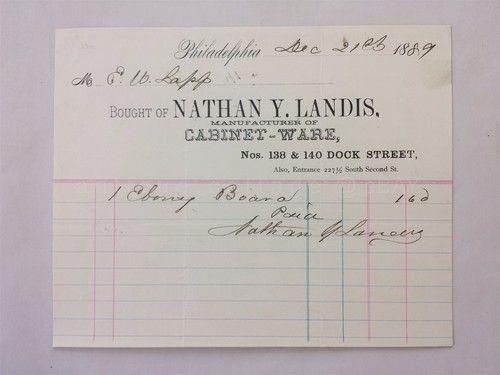 Philadelphia Dec 21st 1889
M E. W. Lapp
BOUGHT OF NATHAN Y. LANDIS,
MANUFACTURER OF
CABINET-WARE,
Nos. 138 & 140 DOCK STREET,
Also, Entrance 227½ South Second St.
1 Ebony Board 1 60
Paid
Nathan Y Landis